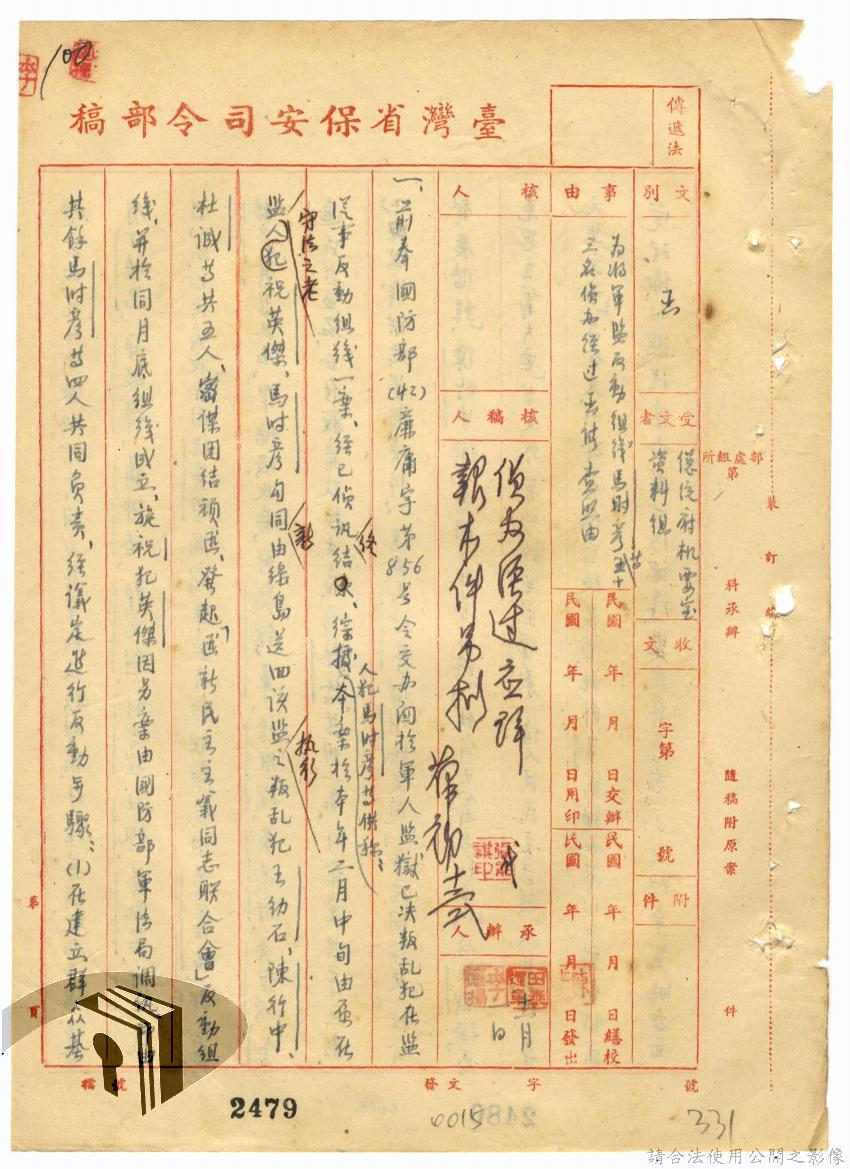 100
臺灣省保安司令部稿
傳遞法
文別
函
事由
為將軍監反動組織馬時彥等五十
三名偵辦經過函請查照由
受文者
總統府機要室
資料組
收文
字第
號
附件
核人
核稿人
偵辦經過並詳
報本件另擬
承辦人
民國 年 月 日交辦
民國 年 月 日繕校
民國 年 月 日用印
民國 年 月 日發出
部處組所
第
科承辦
隨稿附原案
件
裝訂線
一、前奉國防部(42)廉庸字第856号令交办関於軍人監獄已決叛乱犯在監
從事反動組織一案、経已偵訊終結、綜據人犯馬時彥等供稱:本案於本年二月中旬由原在
監人犯祝英傑、馬时彥勾同由綠島送回該監執行之叛乱犯王幼石、陳行中、
杜誠等共五人、密謀団結頑匪、發起「匪新民主主義同志聯合會」反動組
織、并於同月底組織成立、旋祝犯英傑因另案由國防部軍法局調
其餘馬时彥等四人共同負責、経議定進行反動步驟:(1)在建立群众基
守法之老
第
頁
檔號
發文
字
號
2479
0015
331
請合法使用公開之影像